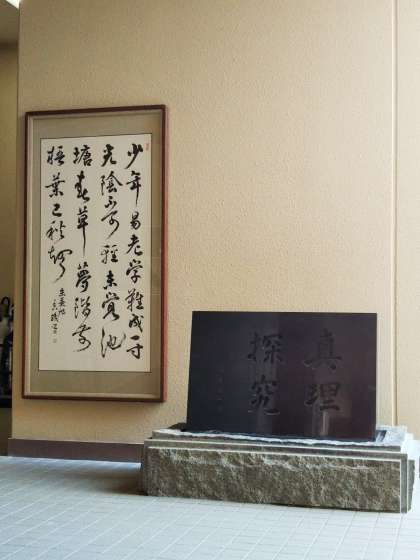 少年易老学難成一寸
光陰不可軽未覚池
塘春草夢階前
梧葉已秋声
真理
探究